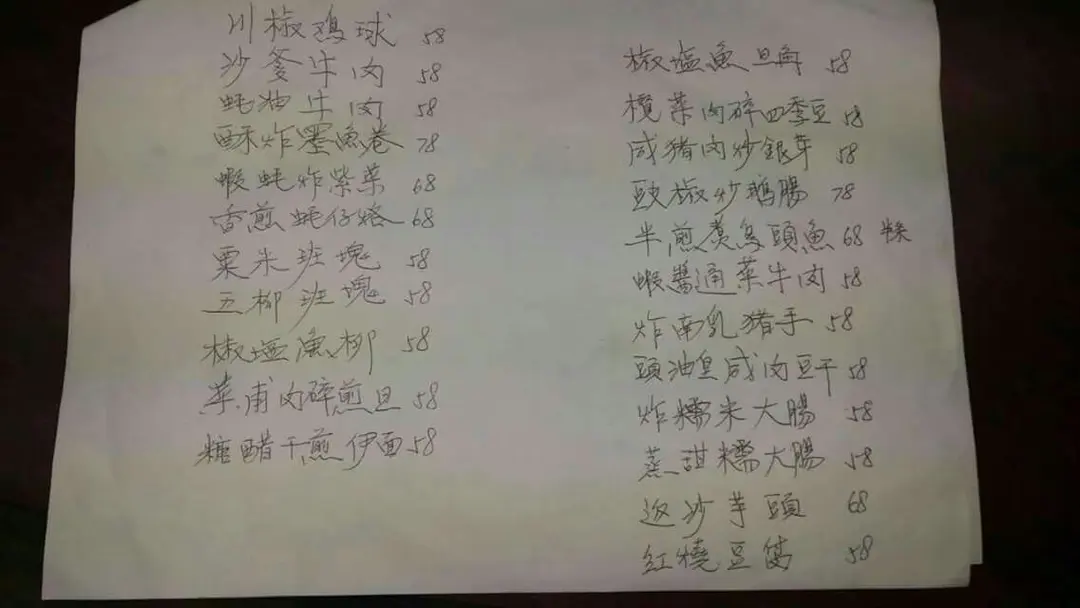 川椒鸡球 58
沙爹牛肉 58
蚝油牛肉 58
酥炸墨魚卷 78
蝦蚝炸紫菜 68
香煎蚝仔烙 68
粟米班塊 58
五柳班塊 58
椒塩魚柳 58
菜甫肉碎煎旦 58
糖醋干煎伊面 58
椒塩魚旦角 58
榄菜肉碎四季豆 58
咸猪肉炒銀芽 58
豉椒炒鵝腸 78
半煎煮烏頭魚 68
蝦醬通菜牛肉 58
炸南乳猪手 58
頭油皇咸肉豆干 58
炸糯米大腸 58
蒸甜糯大腸 58
返沙芋頭 68
紅燒豆腐 58